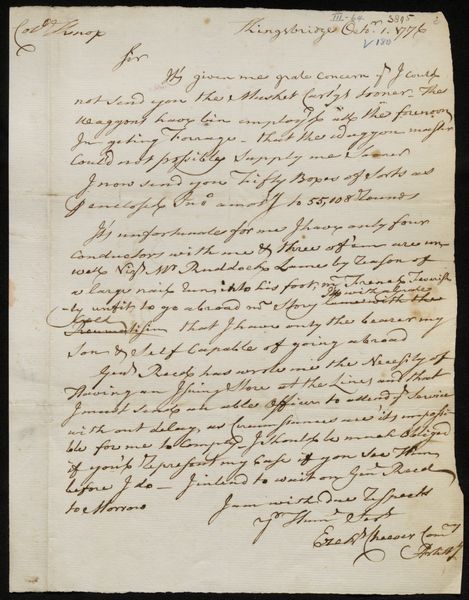 Colo Knox
Kingsbridge Octor. 1. 1776
Sir
It's given me grate concern yt I could
not send you the Musket Cartgs sooner - The
Waggons have bin employd all the forenoon
In geting Forrage - that the waggon master
Could not possibly Supply me Sooner
I now send you Fifty Boxes of Sorts as
pr enclosd Invo. amotg to 55,108 Rounds
It's unfortunate for me I have only four
Conductors with me & three of em are un-
well Vizt Mr. Ruddock Lame by reason of
a large nail run into his foot, Mr
unfit to go abroad Mr Story with the
that I have only the bearer my
Son & Self Capable of going abroad
Genl Reed has wrote me the Necesity of
Having an Issuing Store at the Lines and that
I must send an able Officer to attend ye Service
with out delay, as Circumstances are it's imposi-
ble for me to comply, I should be much Obliged
if you'd represent my Case if you see Him
before I do - I intend to wait on Genl Reed
to Morrow
I am with Due respects
yr Humle Sert
Ezekl Cheever Comy
Artilly